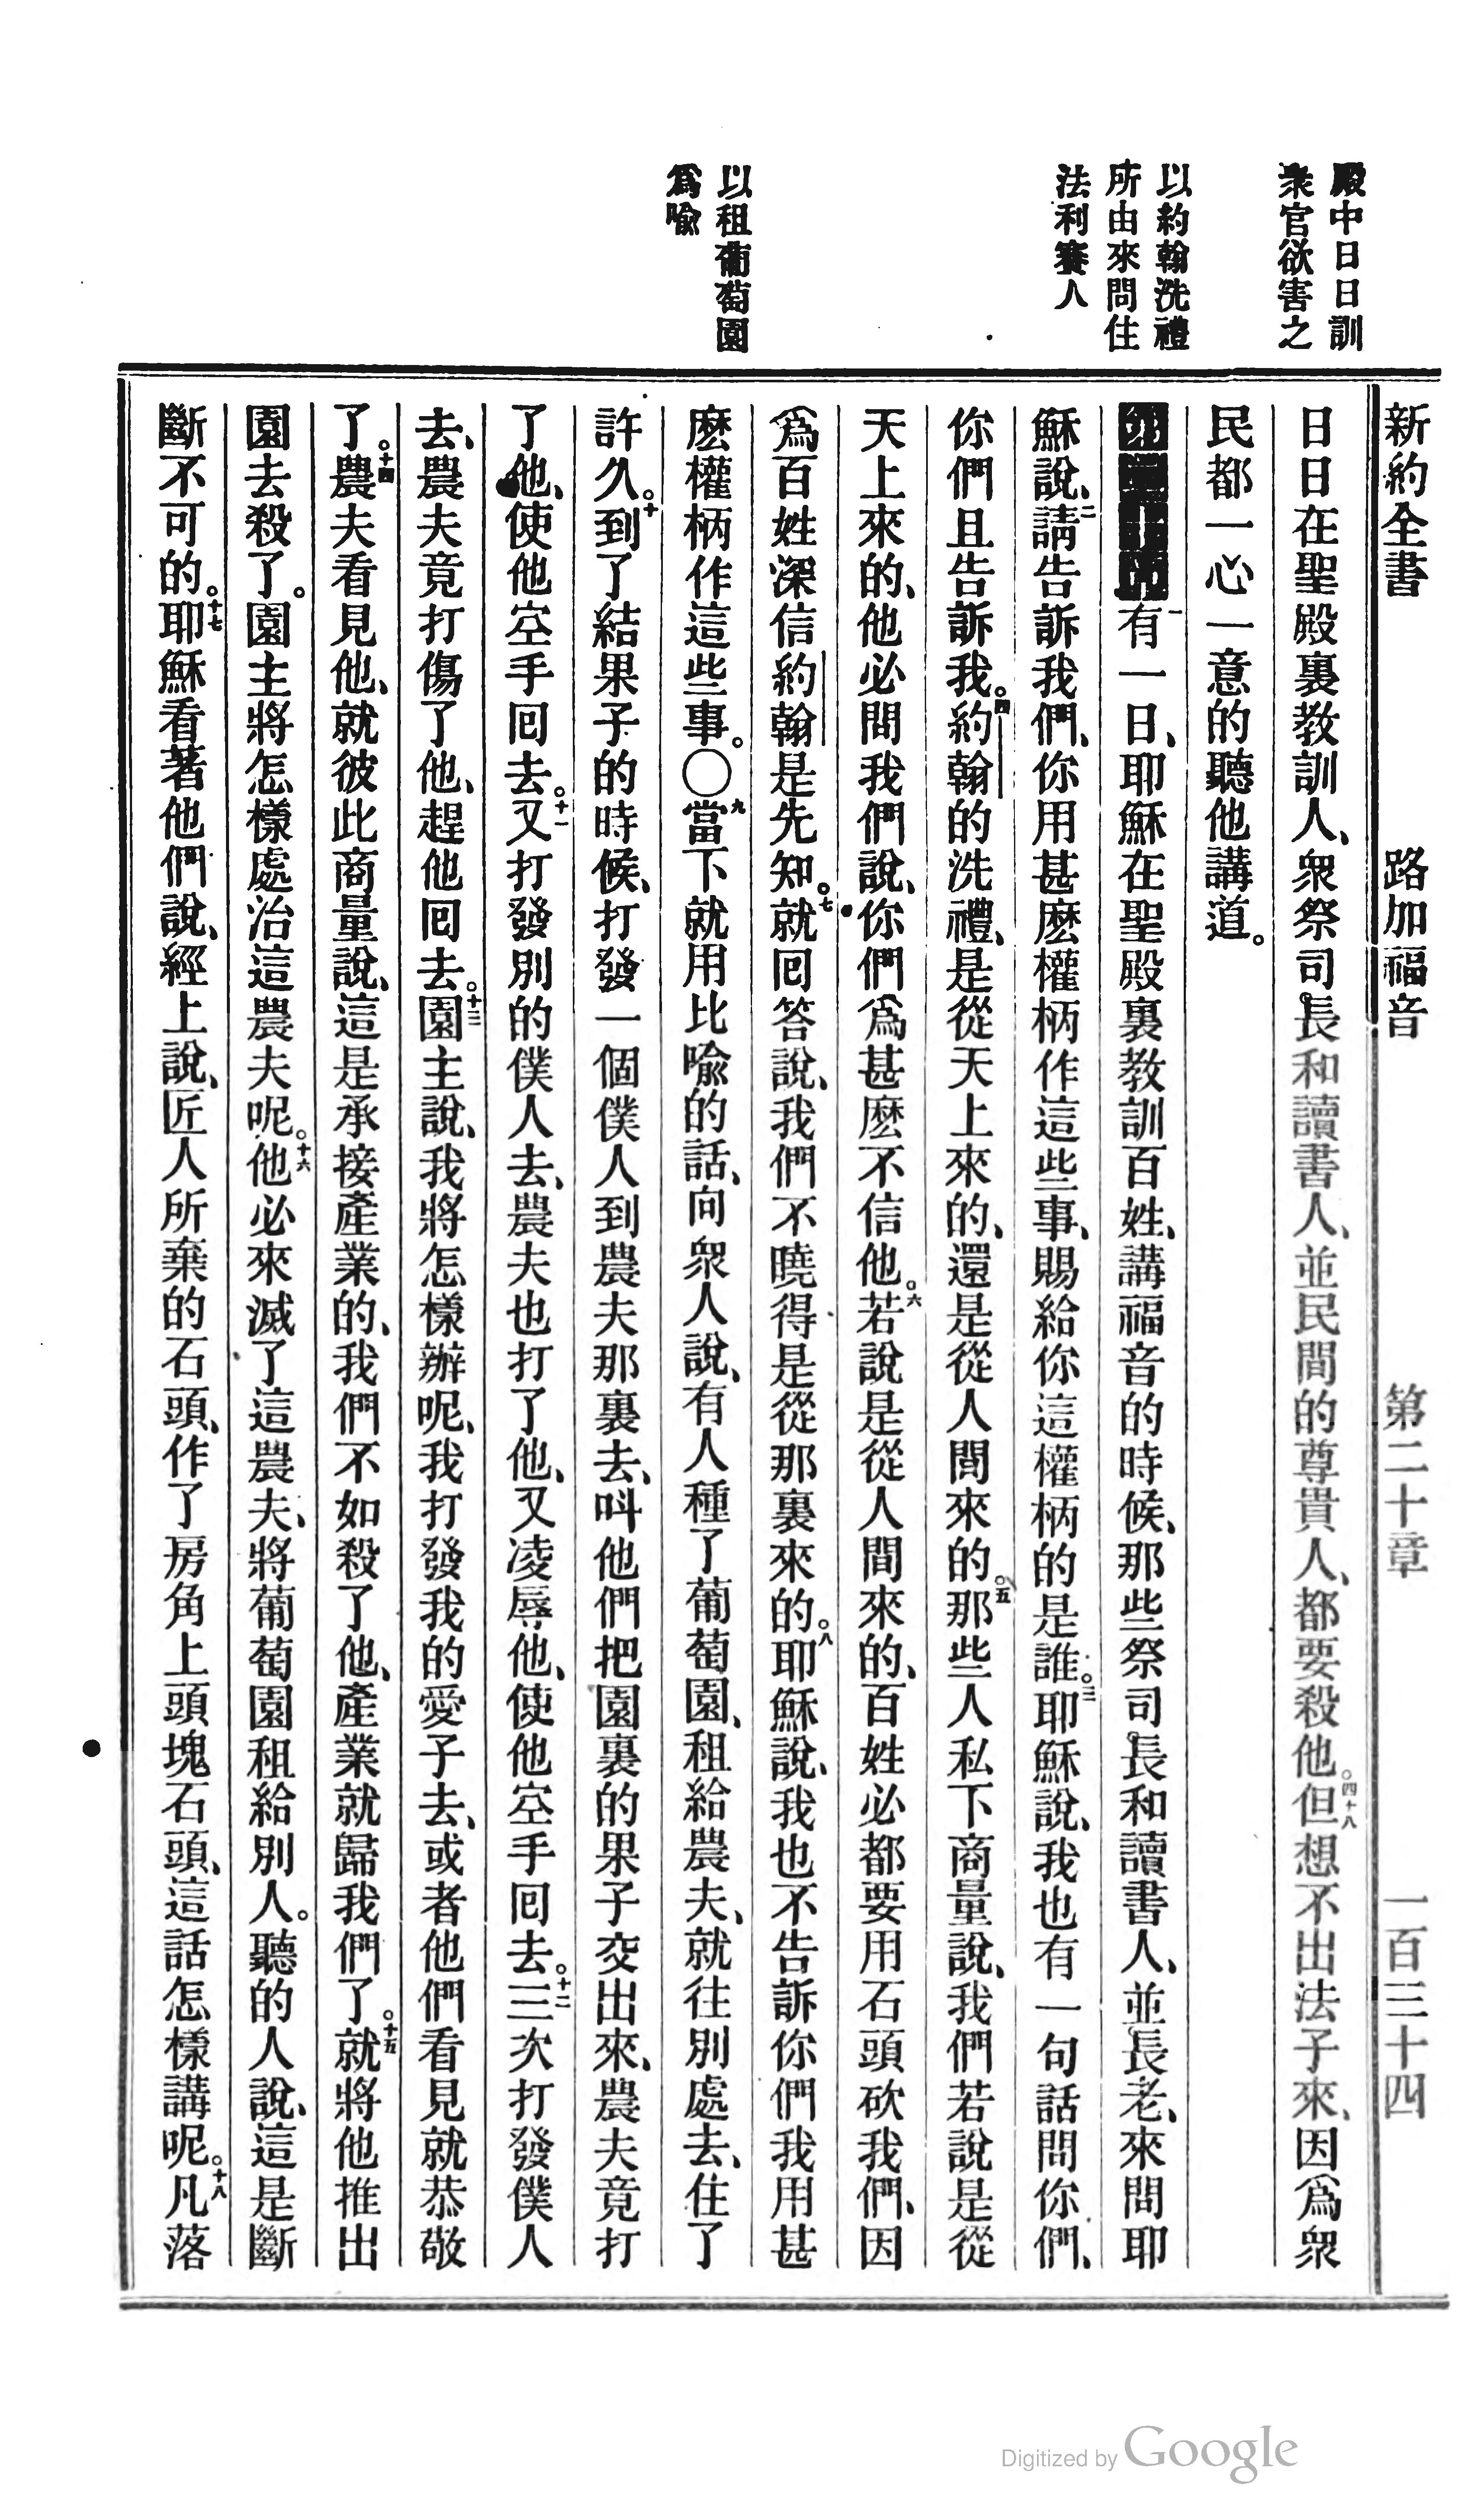 新約全書　路加福音　第二十章　一百三十四
殿中日日訓
衆官欲害之
以約翰洗禮
所由來問住
法利賽人
以租葡萄園
爲喻
日日在聖殿裏教訓人、衆祭司長和讀書人、並民間的尊貴人、都要殺他。四十八但想不出法子來、因爲衆
民都一心一意的聽他講道。
一有一日、耶穌在聖殿裏教訓百姓、講福音的時候、那些祭司長和讀書人、並長老、來問耶
穌說、二請告訴我們、你用甚麽權柄作這些事、賜給你這權柄的是誰。三耶穌說、我也有一句話問你們、
你們且告訴我。四約翰的洗禮、是從天上來的、還是從人間來的。五那些人私下商量說、我們若說是從
天上來的、他必問我們說、你們爲甚麽不信他。六若說是從人間來的、百姓必都要用石頭砍我們、因
爲百姓深信約翰是先知。七就囘答說、我們不曉得是從那裏來的。八耶穌說、我也不告訴你們我用甚
麽權柄作這些事。〇九當下就用比喻的話、向衆人說、有人種了葡萄園、租給農夫、就往別處去、住了
許久。十到了結果子的時候、打發一個僕人到農夫那裏去、呌他們把園裏的果子交出來、農夫竟打
了他、使他空手囘去。十一又打發別的僕人去、農夫也打了他、又凌辱他、使他空手囘去。十二三次打發僕人
去、農夫竟打傷了他、趕他囘去。十三園主說、我將怎樣辦呢、我打發我的愛子去、或者他們看見就恭敬
了。十四農夫看見他、就彼此商量說、這是承接產業的、我們不如殺了他、產業就歸我們了。十五就將他推出
園去殺了。園主將怎樣處治這農夫呢。十六他必來滅了這農夫、將葡萄園租給別人。聽的人說、這是斷
斷不可的。十七耶穌看著他們說、經上說、匠人所棄的石頭、作了房角上頭塊石頭、這話怎樣講呢。十八凡落
Digitized by Google